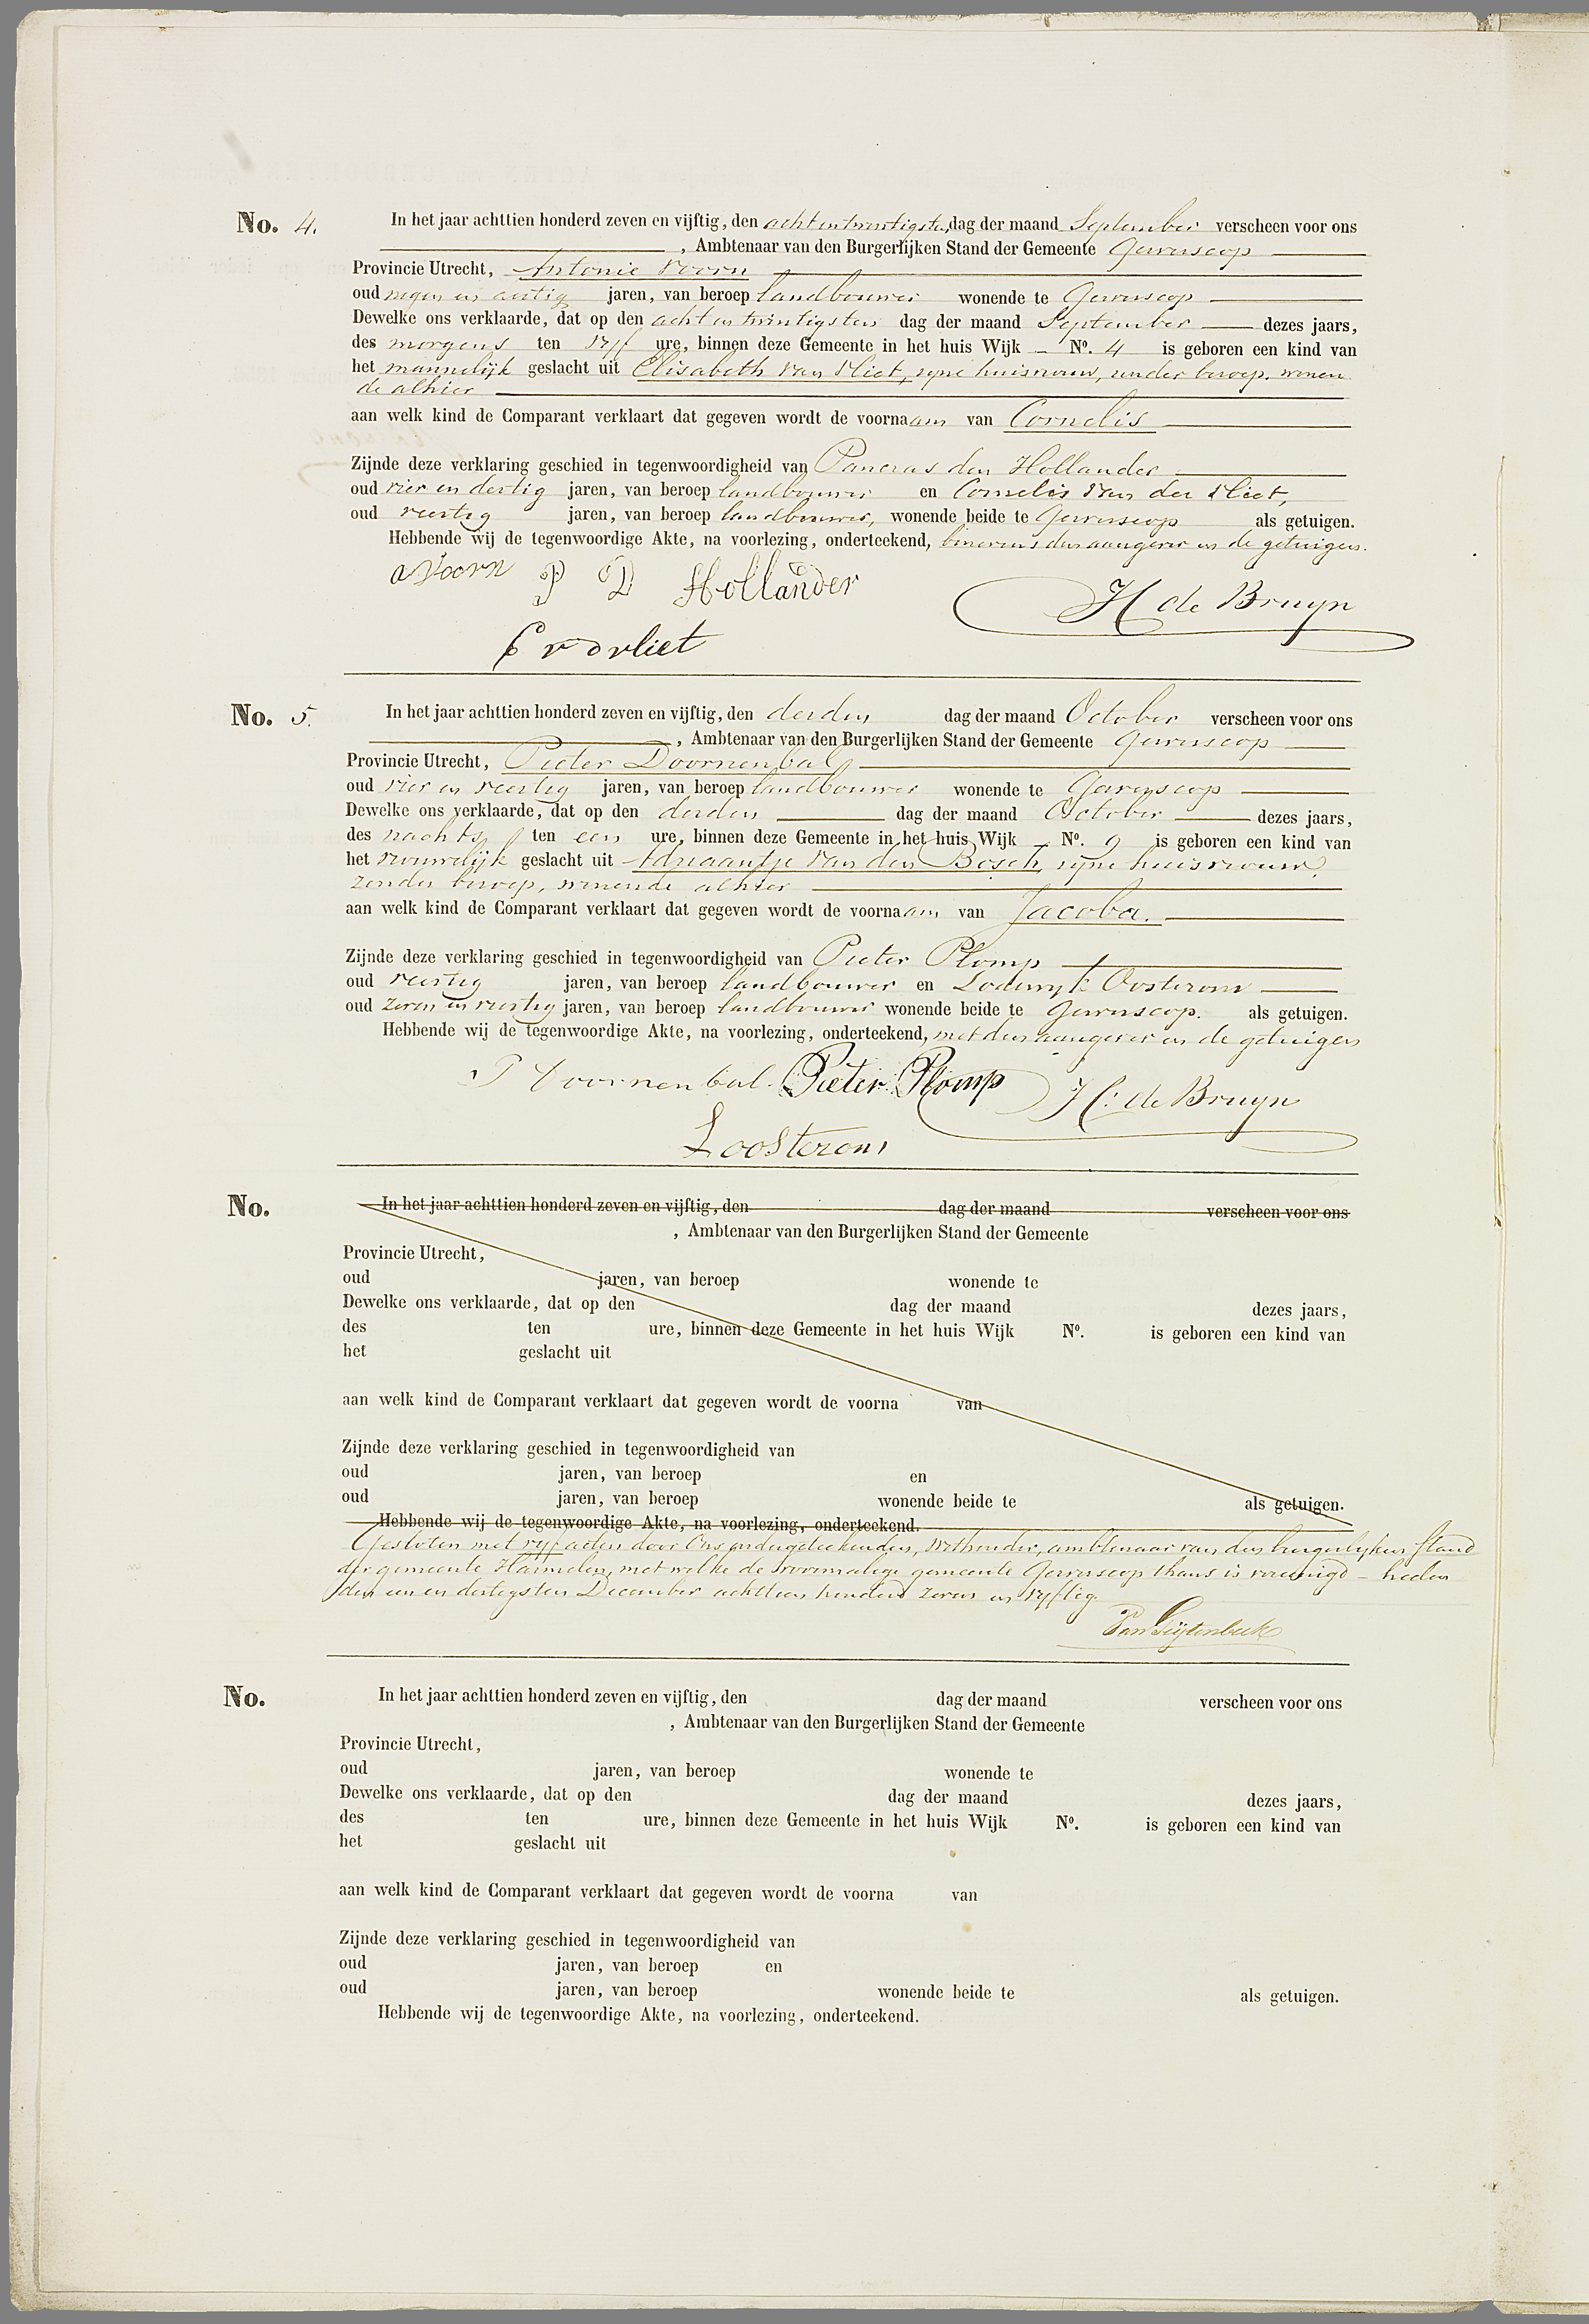 No. 4. In het jaar achttien honderd zeven en vijftig, den acht en twintigsten dag der maand September verscheen voor ons
, Ambtenaar van den Burgerlijken Stand der Gemeente Gerverscop
Provincie Utrecht, Antonie Voorn
oud negen en dertig jaren, van beroep landbouwer wonende te Gerverscop
Dewelke ons verklaarde, dat op den acht en twintigsten dag der maand September dezes jaars,
des morgens ten vijf ure, binnen deze Gemeente in het huis Wijk – No. 4 is geboren een kind van
het mannelijk geslacht uit Elisabeth van Vliet, zijne huisvrouw, zonder beroep, wonen
de alhier
aan welk kind de Comparant verklaart dat gegeven wordt de voornaam van Cornelis
Zijnde deze verklaring geschied in tegenwoordigheid van Pancras den Hollander
oud vier en dertig jaren, van beroep landbouwer en Cornelis van der Vliet,
oud veertig jaren, van beroep landbouwer, wonende beide te Gerverscop als getuigen.
Hebbende wij de tegenwoordige Akte, na voorlezing, onderteekend, benevens den aangever en de getuigen.
A Voorn P D Hollander
H de Bruyn
C v d vliet
No. 5. In het jaar achttien honderd zeven en vijftig, den derden dag der maand October verscheen voor ons
, Ambtenaar van den Burgerlijken Stand der Gemeente Gerverscop
Provincie Utrecht, Pieter Doornenbal
oud vier en veertig jaren, van beroep landbouwer wonende te Gerverscop
Dewelke ons verklaarde, dat op den derden dag der maand October dezes jaars,
des nachts ten een ure, binnen deze Gemeente in het huis Wijk – No. 9 is geboren een kind van
het vrouwelijk geslacht uit Adriaantje van den Bosch, zijne huisvrouw,
zonder beroep, wonende alhier
aan welk kind de Comparant verklaart dat gegeven wordt de voornaam van Jacoba.
Zijnde deze verklaring geschied in tegenwoordigheid van Pieter Plomp
oud veertig jaren, van beroep landbouwer en Lodewyk Oosterom
oud zeven en veertig jaren, van beroep landbouwer wonende beide te Gerverscop. als getuigen.
Hebbende wij de tegenwoordige Akte, na voorlezing, onderteekend, met den aangever en de getuigen
P Doornenbal Pieter Plomp H: de Bruyn
L oosterom
No. In het jaar achttien honderd zeven en vijftig, den dag der maand verscheen voor ons
, Ambtenaar van den Burgerlijken Stand der Gemeente
Provincie Utrecht,
oud jaren, van beroep wonende te
Dewelke ons verklaarde, dat op den dag der maand dezes jaars,
des ten ure, binnen deze Gemeente in het huis Wijk No. is geboren een kind van
het geslacht uit
aan welk kind de Comparant verklaart dat gegeven wordt de voorna van
Zijnde deze verklaring geschied in tegenwoordigheid van
oud jaren, van beroep en
oud jaren, van beroep wonende beide te als getuigen.
Hebbende wij de tegenwoordige Akte, na voorlezing, onderteekend.
Gesloten met vijf acten door Ons ondergeteekenden, Wethouder, ambtenaar van den burgerlyken Stand
der gemeente Harmelen, met welke de voormalige gemeente Gerverscop thans is vereenigd – heden
den een en dertigsten December achttien honderd zeven en vyftig.
No. In het jaar achttien honderd zeven en vijftig, den dag der maand verscheen voor ons
, Ambtenaar van den Burgerlijken Stand der Gemeente
Provincie Utrecht,
oud jaren, van beroep wonende te
Dewelke ons verklaarde, dat op den dag der maand dezes jaars,
des ten ure, binnen deze Gemeente in het huis Wijk No. is geboren een kind van
het geslacht uit
aan welk kind de Comparant verklaart dat gegeven wordt de voorna van
Zijnde deze verklaring geschied in tegenwoordigheid van
oud jaren, van beroep en
oud jaren, van beroep wonende beide te als getuigen.
Hebbende wij de tegenwoordige Akte, na voorlezing, onderteekend.